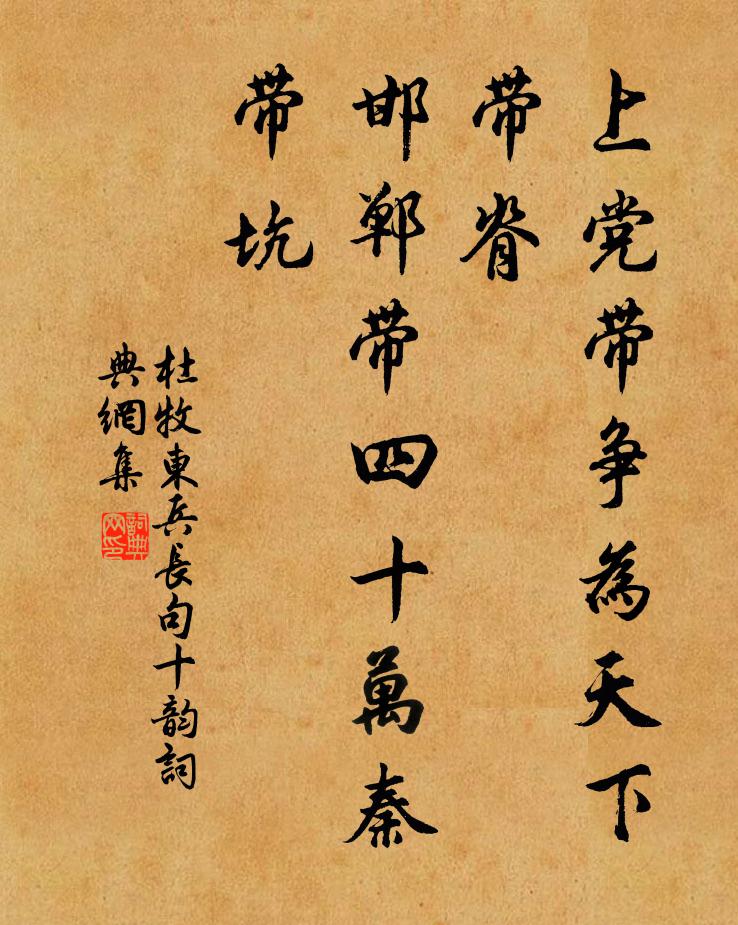 上党带争為天下
带脊
邯郸带四十萬秦
带坑
杜牧東兵長句十韵詞
典網集
詞典
网印